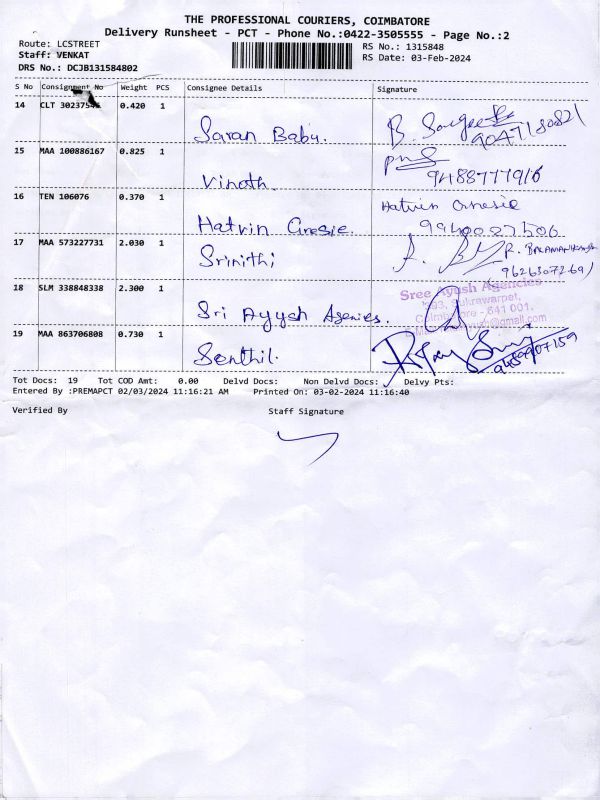 THE PROFESSIONAL COURIERS, COIMBATORE
Delivery Runsheet - PCT - Phone No.:0422-3505555 - Page No.:2
Route: LCSTREET
RS No.: 1315848
Staff: VENKAT
RS Date: 03-Feb-2024
DRS No.: DCJB131584802
S No Consignment No Weight PCS Consignee Details Signature
14 CLT 3023754 0.420 1 Saran Babu. B. 9047180821
15 MAA 100886167 0.825 1 Vinoth. 9488777916
16 TEN 106076 0.370 1 Hatvin 9940027506
17 MAA 573227731 2.030 1 Srinithi 9626307269
18 SLM 338848338 2.300 1 Sri Ayush Agencies.
Sree Ayush Agencies
Sukrawarpet,
Coimbatore - 641 001.
@gmail.com
19 MAA 863706808 0.730 1 Senthil. 9489907159
Tot Docs: 19 Tot COD Amt: 0.00 Delvd Docs: Non Delvd Docs: Delvy Pts:
Entered By :PREMAPCT 02/03/2024 11:16:21 AM Printed On: 03-02-2024 11:16:40
Verified By Staff Signature